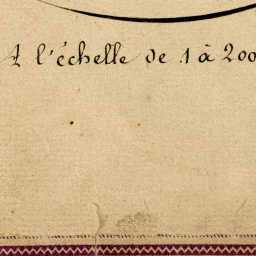 à l'échelle de 1 à 200